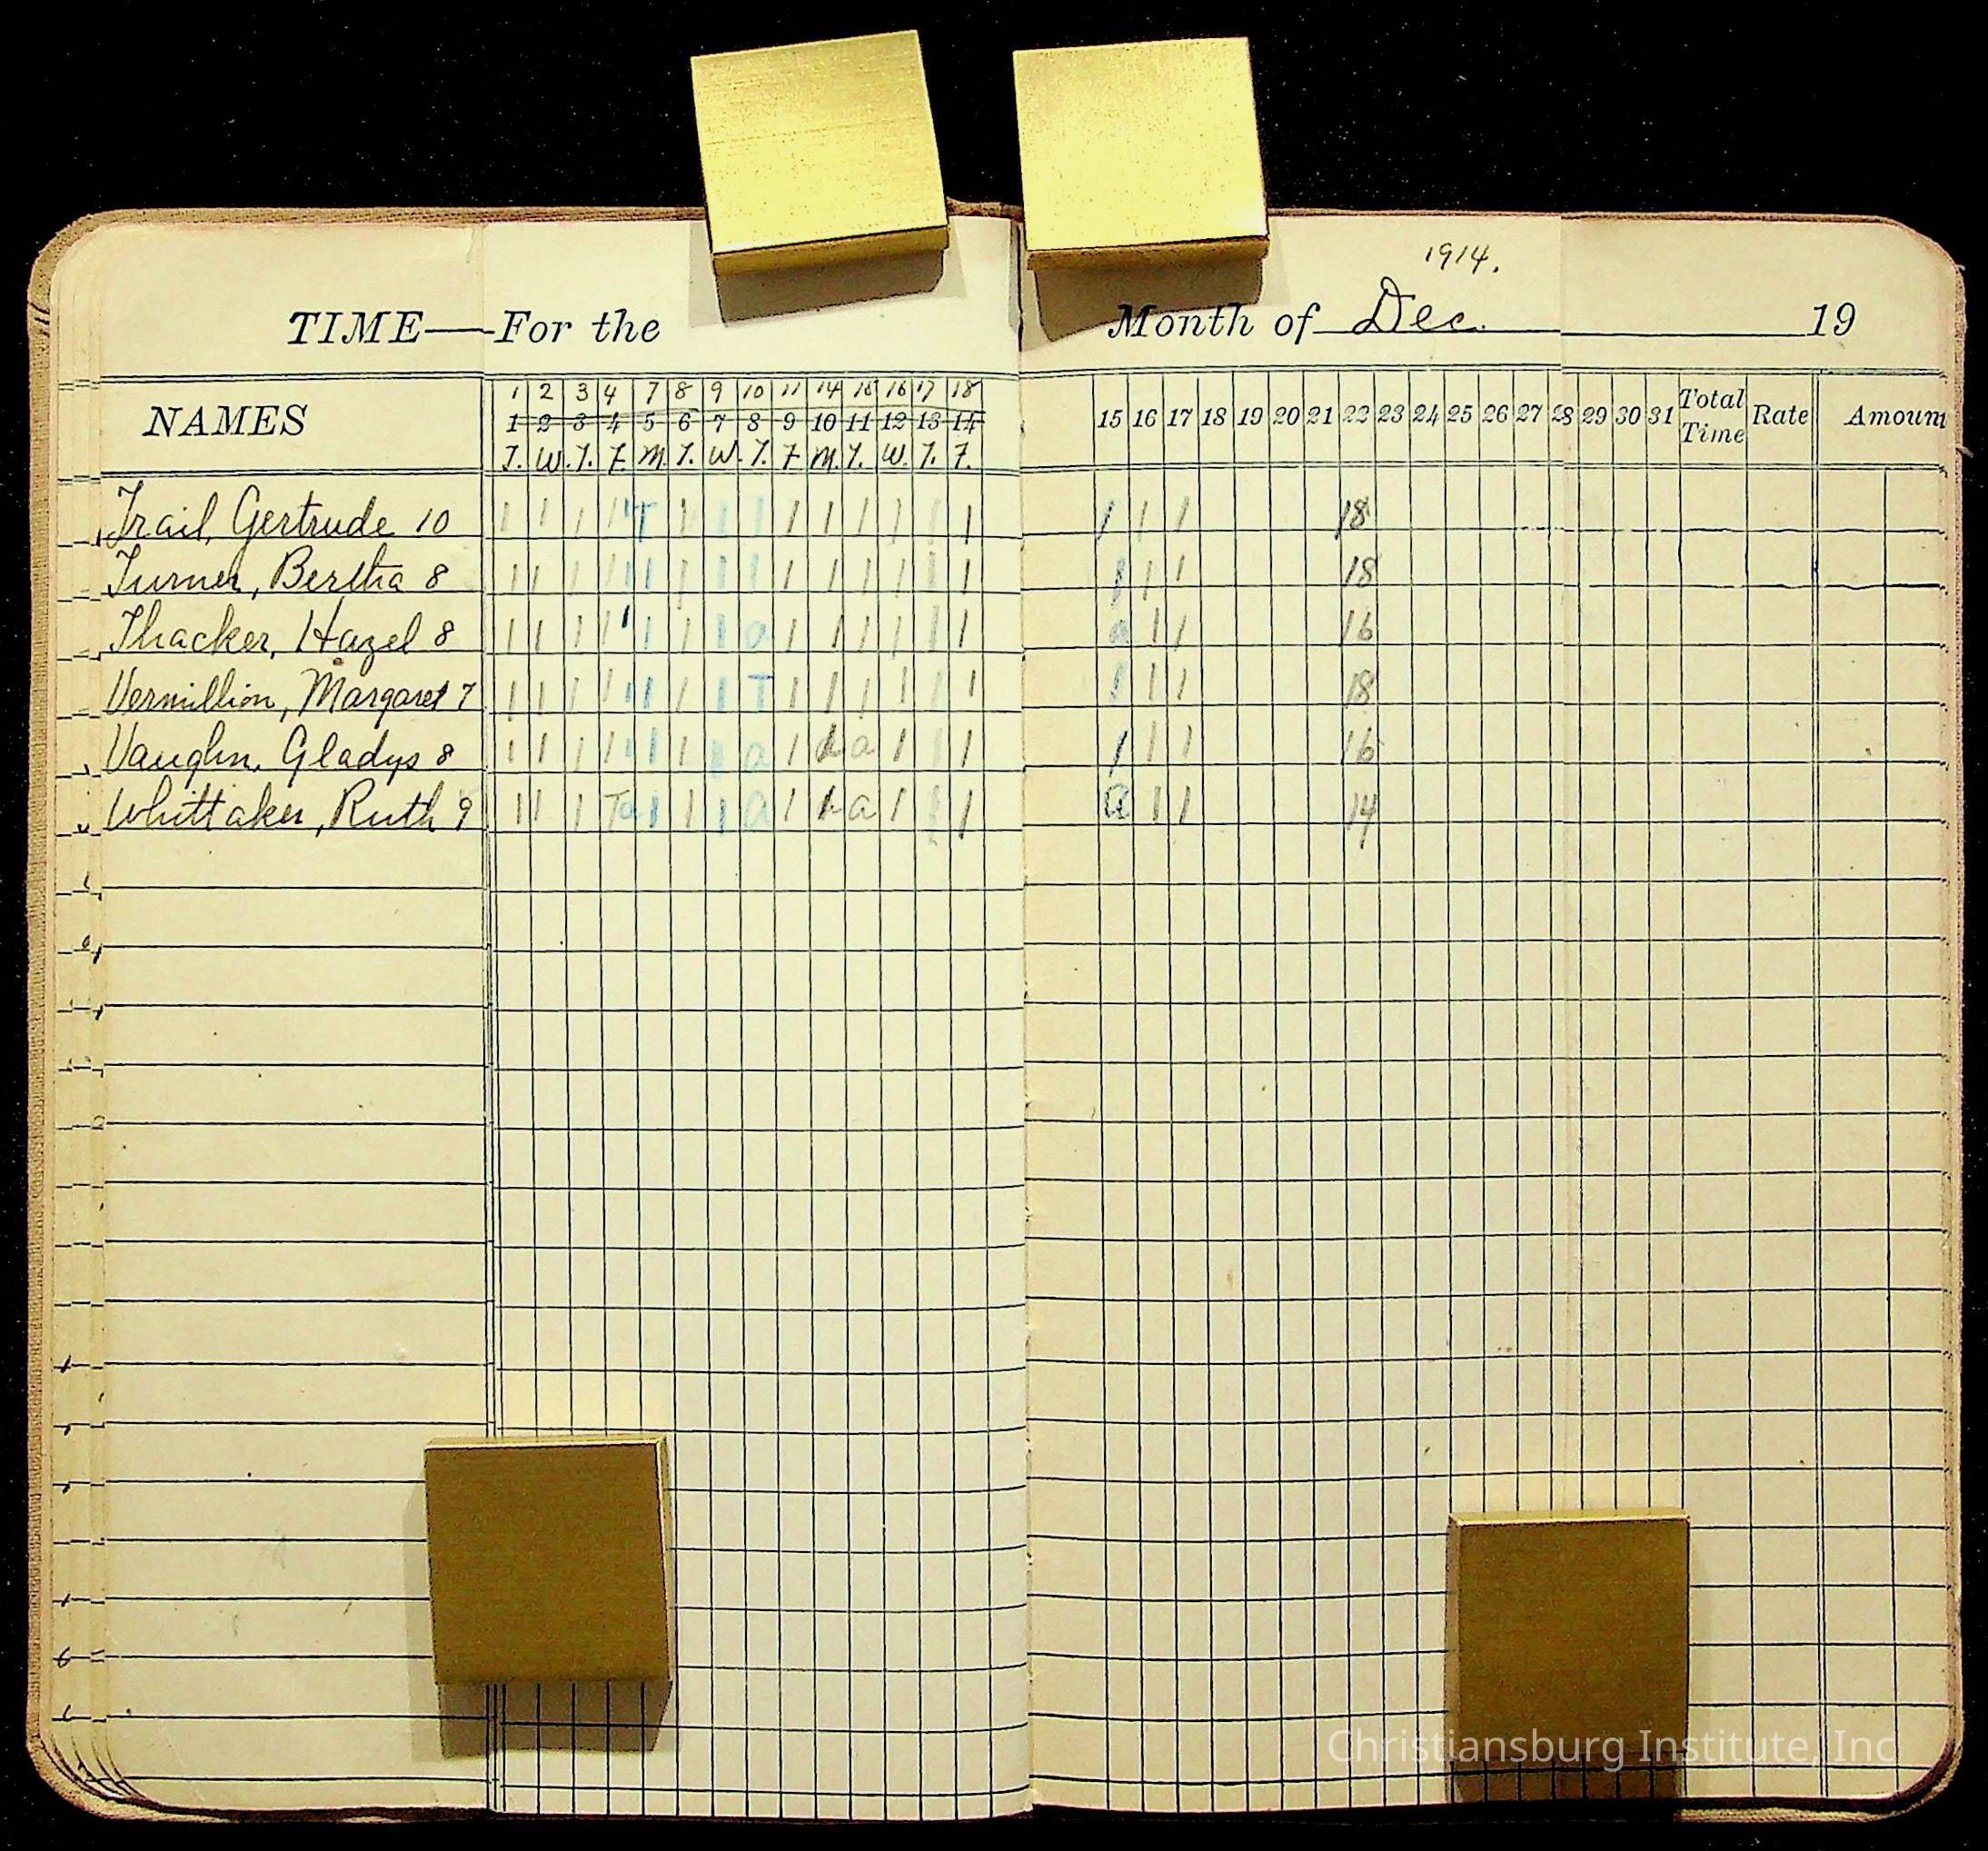 1914.
TIME—For the Month of Dec. 19
1 2 3 4 7 8 9 10 11 14 15 16 17 18
NAMES 1 2 3 4 5 6 7 8 9 10 11 12 13 14 15 16 17 18 19 20 21 22 23 24 25 26 27 28 29 30 31 Total Time Rate Amount
T. W. T. F. M. T. W. T. F M. T. W. T. F.
Trail, Gertrude 10 1 1 1 1 1 T 1 1 1 1 1 1 1 1 1 1 1 1 18
Turner, Bertha 8 1 1 1 1 1 1 1 1 1 1 1 1 1 1 1 1 1 1 18
Thacker, Hazel 8 1 1 1 1 1 1 1 1 a 1 1 1 1 1 1 a 1 1 16
Vermillion, Margaret 7 1 1 1 1 1 1 1 1 T 1 1 1 1 1 1 1 1 1 18
Vaughn, Gladys 8 1 1 1 1 1 1 1 1 a 1 a 1 1 1 1 1 1 16
Whittaker, Ruth 9 1 1 1 T a 1 1 1 a 1 a 1 1 1 a 1 1 14
Christiansburg Institute, Inc